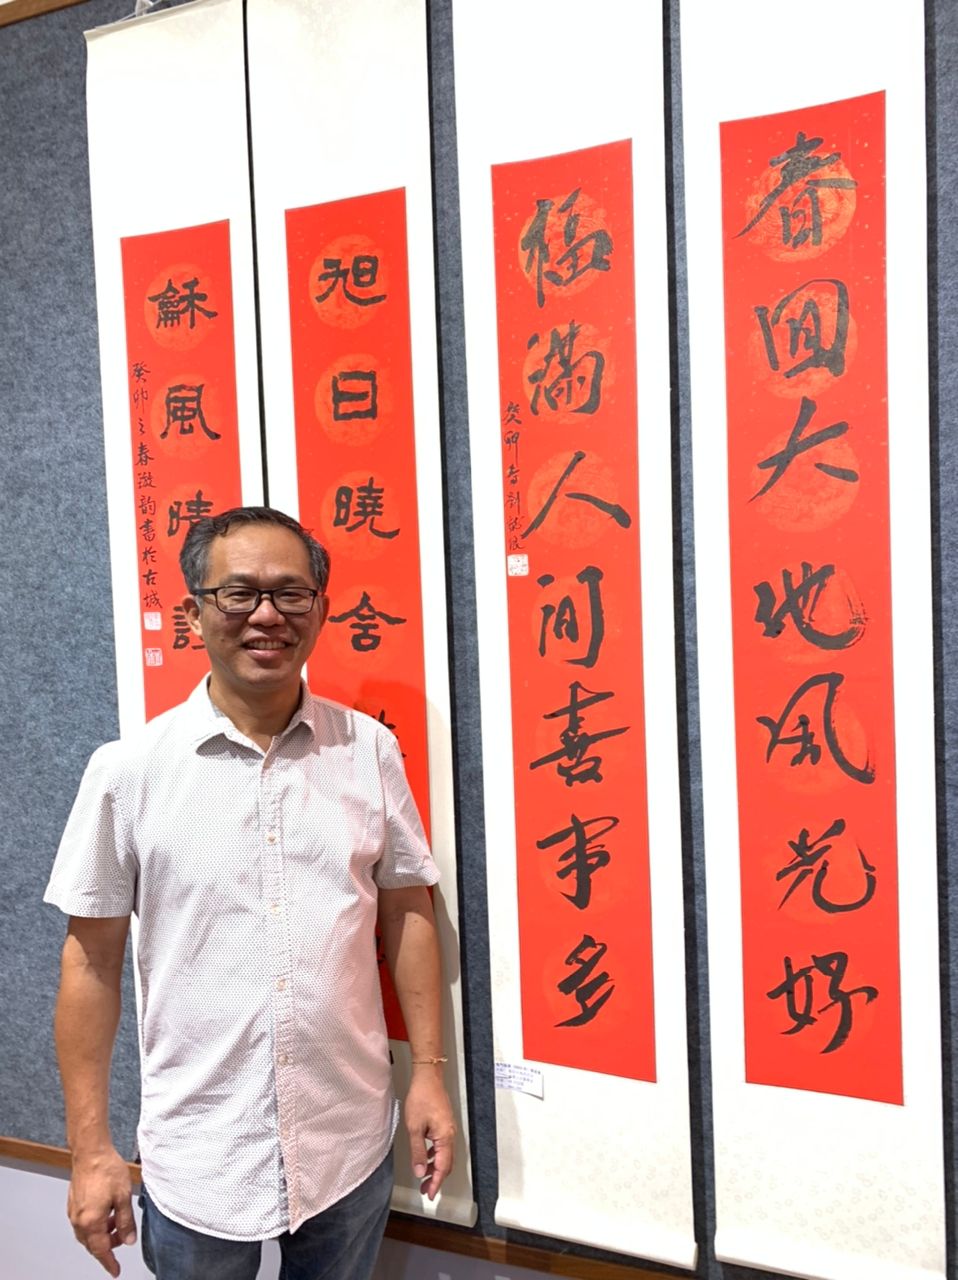 春回大地風光好
福滿人間喜事多
癸卯春劉
旭日曉舍
龢風曉
癸卯之春漩韵書於古城